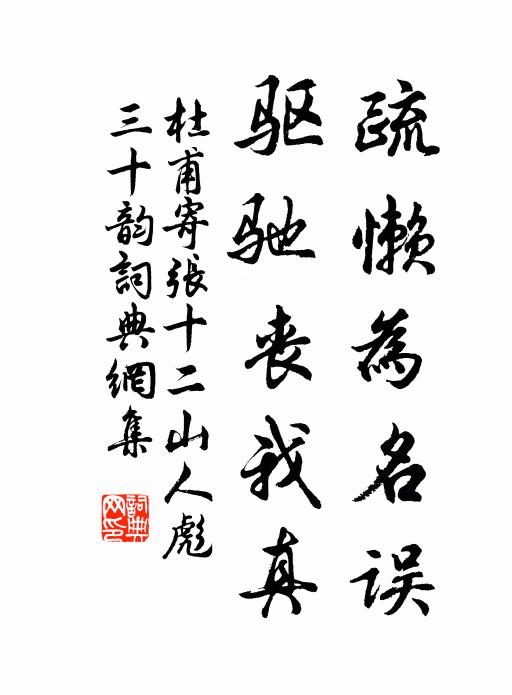 疏懒為名误
驱驰丧我真
杜甫寄張十二山人彪
三十韵詞典網集
詞典网印